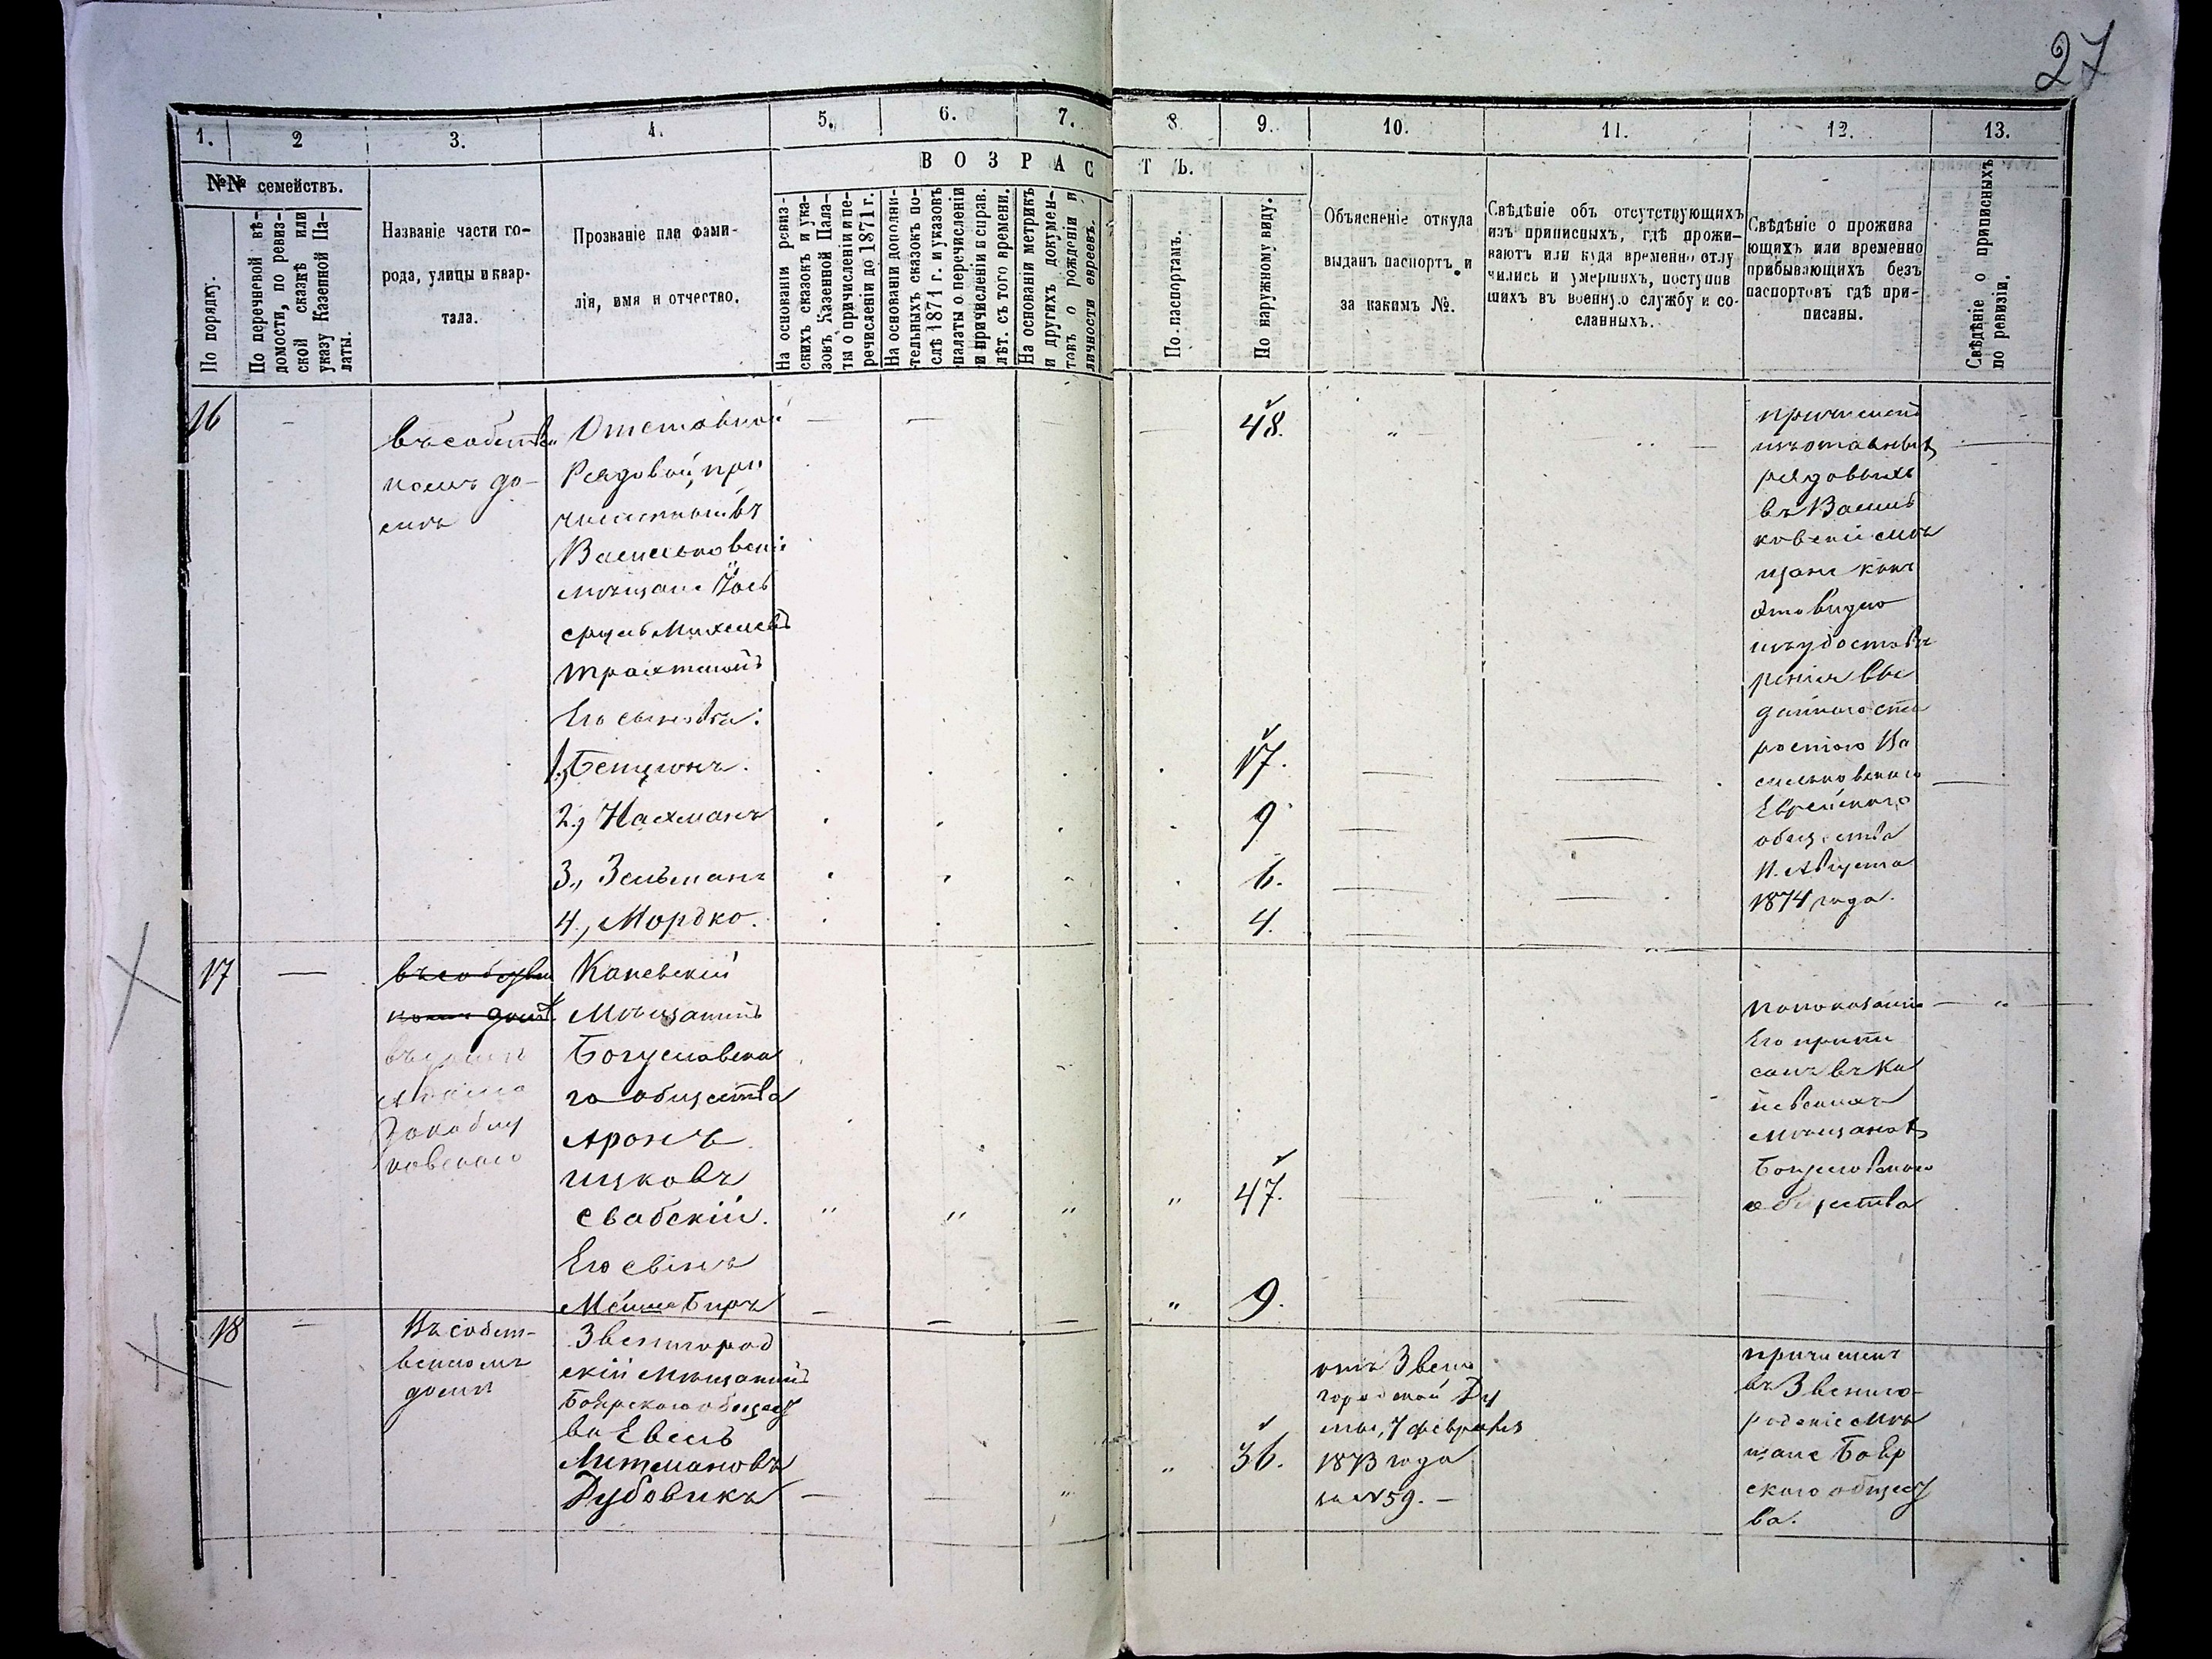 27
1. 2 3. 4. 5. 6. 7. 8 9. 10. 11. 12. 13.
№№ семействъ.
По порядку.
По перечневой вѣ-
домости, по ревиз-
ской сказкѣ или
указу Казенной Па-
латы.
Названіе части го-
рода, улицы и квар-
тала.
Прозваніе или фами-
лія, имя и отчество.
ВОЗРАСТЪ.
На основаніи ревиз-
скихъ сказокъ и ука-
зовъ Казенной Пала-
ты о причисленіи и пе-
речисленіи до 1871 г.
На основаніи дополни-
тельныхъ сказокъ по-
слѣ 1871 г. и указовъ
палаты о перечисленіи
и причисленіи и справ.
лѣт. съ того времени.
На основаніи метрикъ
и другихъ докумен-
товъ о рожденіи и
личности евреевъ.
По паспортамъ.
По наружному виду.
Объясненіе откуда
выданъ паспортъ и
за какимъ №.
Свѣдѣніе объ отсутствующихъ
изъ приписныхъ, гдѣ прожи-
ваютъ или куда временно отлу
чились и умершихъ, поступив
шихъ въ военную службу и со-
сланныхъ.
Свѣдѣніе о прожива
ющихъ или временно
прибывающихъ безъ
паспортовъ гдѣ при-
писаны.
Свѣдѣніе о приписныхъ
по ревизіи.
16
въ собствен
номъ до-
мѣ
Отставной
Рядовой, при
численный въ
Васильковскіе
мѣщане
Михелевъ
Его сыновья:
1., Бенціонъ.
2., Нахманъ
3., Зельманъ
4., Мордко.
48.
17.
9
6.
4.
причисленъ
изъ отставныхъ
рядовыхъ
въ Василь
ковскіе мѣ
щане какъ
это видно
изъ удостовѣ
ренія вы
даннаго ста
ростою Ва
сильковскаго
Еврейскаго
общества
11. Августа
1874 года.
17
въ собствен
номъ домѣ.
въ домѣ
Каневскій
Мѣщанинъ
Богуславска
го общества
Аронъ
Ицковъ
Свабскій.
Его сынъ
Мойше Беръ
47.
9.
по показанію
Его припи
санъ въ Ка
невскихъ
мѣщанахъ
Богуславскаго
общества
18
Въ собст-
венномъ
домѣ
Звенигород
скій Мѣщанинъ
Боярскаго общест
ва Евель
Литмановъ
Дубовикъ
36.
отъ Звени
городской Ду
мы, 7 февраля
1873 года
за № 59. —
причисленъ
въ Звениго-
родскіе мѣ
щане Бояр
скаго общест
ва.